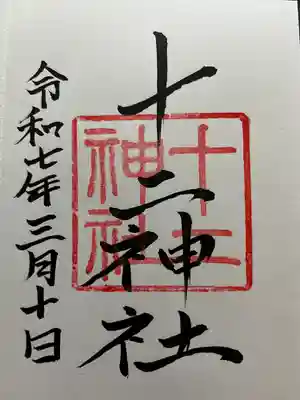 十二神社
十二
神社
令和七年三月十日